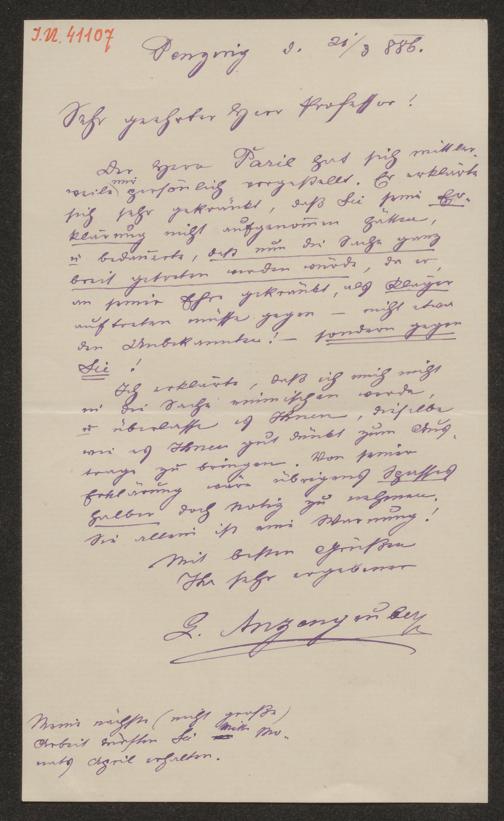 I.N. 41107
Penzing d. 21/3 886.
Sehr geehrter Herr Professor!
Der Herr Pazil hat sich mittler-
weile mir persönlich vorgestellt. Er erklärte
sich sehr gekränkt, daß Sie seine Er-
klärung nicht aufgenommen hätten,
u bedauerte, daß nun die Sache ganz
breit getreten werden würde, da er,
an seiner Ehre gekränkt, als Kläger
auftreten müsse gegen – nicht etwa
den Unbekannten! – sondern gegen
Sie!
Ich erklärte, daß ich mich nicht
in die Sache einmischen werde,
u überlasse es Ihnen, dieselbe
wie es Ihnen gut dünkt zum Aus-
trage zu bringen. Von seiner
Erklärung wäre übrigens Spasses
halber doch Notiz zu nehmen.
Sie allein ist eine Warnung!
Mit besten Grüßen
Ihr sehr ergebener
L. Anzengruber
Meine nächste (nicht große)
Arbeit dürften Sie Mitte Mo-
nats April erhalten.